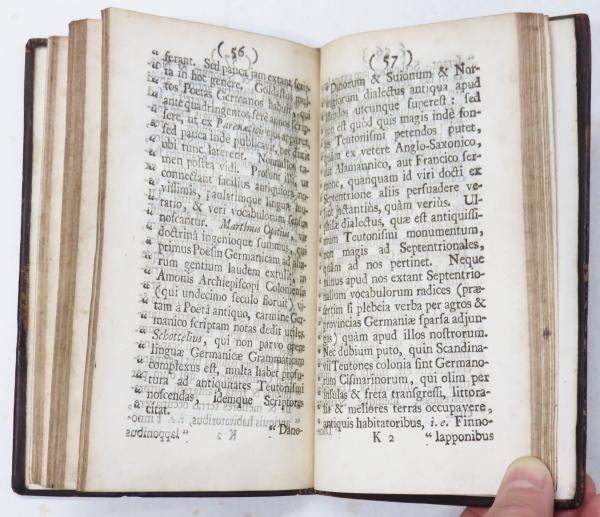 ( 56 )
“ ferant. Sed pauca jam extant scrip-
“ ta in hoc genere. Goldastus mul-
“ tos Poëtas Germanos habuit, qui
“ ante quadringentos fere annos scrip-
“ sere, ut ex Paræneticis ejus apparet,
“ sed pauca inde publicavit, nec dixit
“ ubi tunc laterent. Nonnullos ta-
“ men postea vidi. Prosunt illi, ut
“ connectant facilius antiquiora no-
“ vissimis, paulatimque linguæ mu-
“ tatio, & veri vocabulorum sensus
“ noscantur. Martinus Opitius, vir
“ doctrinâ ingenioque summus, qui
“ primus Poësin Germanicam ad alia-
“ rum gentium laudem extulit, in
“ Amonis Archiepiscopi Coloniensis
“ (qui undecimo seculo floruit) vi-
“ tam à Poëtâ antiquo, carmine Ger-
“ manico scriptam notas dedit utiles.
“ Schottelius, qui non parvo opere
“ linguæ Germanicæ Grammaticam
“ complexus est, multa habet profu-
“ tura ad antiquitates Teutonismi
“ noscendas, idemque Scriptores
“ citat.
“ Dano-
( 57 )
Danorum & Suionum & Nor-
vegiorum dialectus antiqua apud
Islandos utcunque superest: sed
non est quòd quis magis inde fon-
tes Teutonismi petendos putet,
quàm ex vetere Anglo-Saxonico,
Alamannico, aut Francico ser-
mone, quanquam id viri docti ex
Septentrione aliis persuadere ve-
lint jactantiùs, quàm veriùs. Ul-
philæ dialectus, quæ est antiquissi-
mum Teutonismi monumentum,
non magis ad Septentrionales,
quàm ad nos pertinet. Neque
minus apud nos extant Septentrio-
nalium vocabulorum radices (præ-
sertim si plebeia verba per agros &
provincias Germaniæ sparsa adjun-
gas) quàm apud illos nostrorum.
Nec dubium puto, quin Scandina-
vii Teutones colonia sint Germano-
rum Cismarinorum, qui olim per
insulas & freta transgressi, littora-
lia & meliores terras occupavere,
antiquis habitatoribus, i. e. Finno-
K 2 “ lapponibus